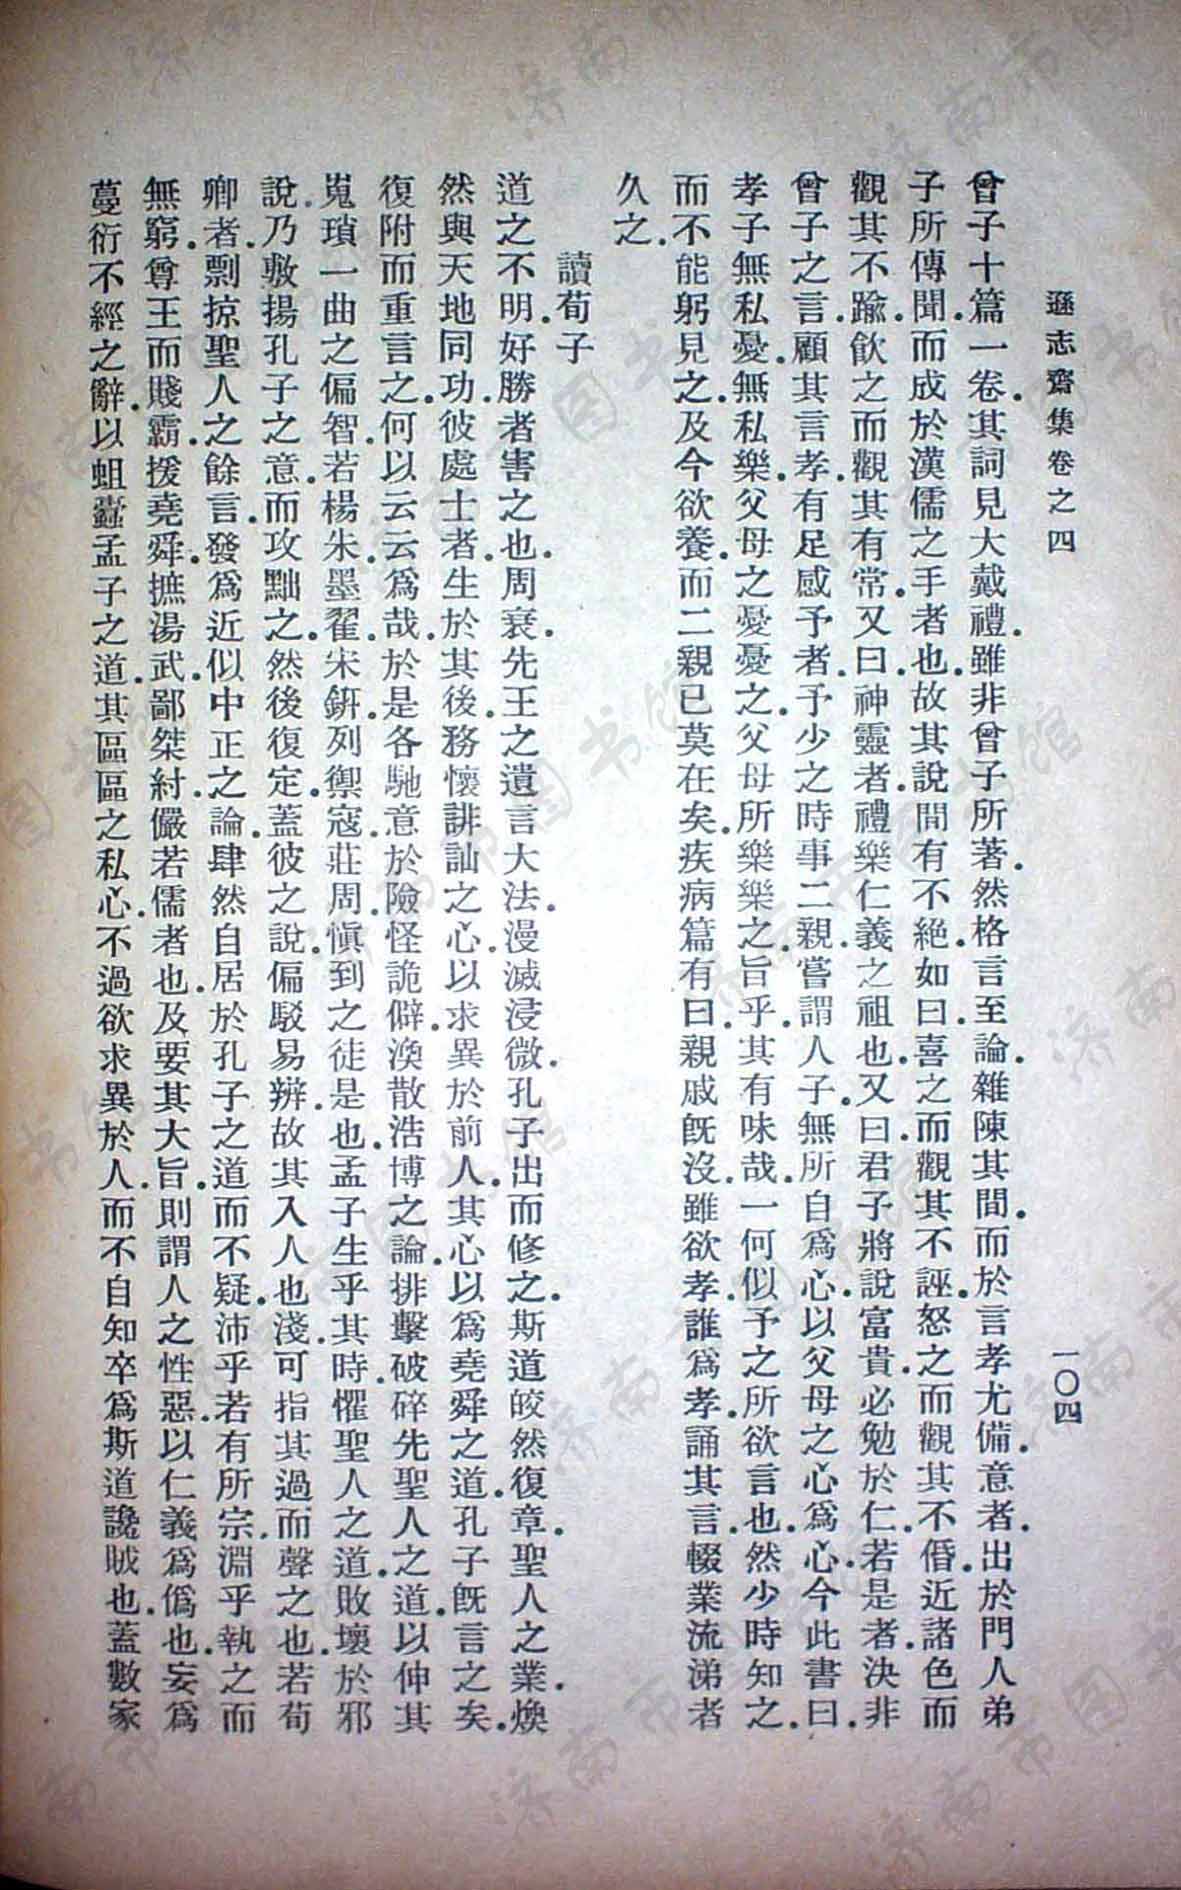 遜志齋集卷之四
一〇四
曾子十篇一卷.其詞見大戴禮.雖非曾子所著.然格言至論.雜陳其間.而於言孝尤備.意者.出於門人弟
子所傳聞.而成於漢儒之手者也.故其說間有不絕.如曰.喜之而觀其不誣.怒之而觀其不惛.近諸色而
觀其不踰.飲之而觀其有常.又曰.神靈者.禮樂仁義之祖也.又曰.君子將說富貴.必勉於仁.若是者.決非
曾子之言.顧其言孝.有足感予者.予少之時事二親.嘗謂人子.無所自為心.以父母之心為心.今此書曰.
孝子無私憂.無私樂.父母之憂憂之.父母所樂樂之.旨乎.其有味哉.一何似予之所欲言也.然少時知之.
而不能躬見之.及今欲養.而二親已莫在矣.疾病篇有曰.親戚既沒.雖欲孝.誰為孝.誦其言.輟業流涕者
久之.
讀荀子
道之不明.好勝者害之也.周衰.先王之遺言大法.漫滅浸微.孔子出而修之.斯道皎然復章.聖人之業.煥
然與天地同功.彼處士者.生於其後.務懷誹訕之心.以求異於前人.其心以為堯舜之道.孔子既言之矣.
復附而重言之.何以云云為哉.於是各馳意於險怪詭僻.渙散浩博之論.排擊破碎先聖人之道.以伸其
嵬瑣一曲之偏智.若楊朱.墨翟.宋鈃.列禦寇.莊周.慎到之徒是也.孟子生乎其時.懼聖人之道.敗壞於邪
說.乃敷揚孔子之意.而攻黜之.然後復定.蓋彼之說.偏駁易辨.故其入人也淺.可指其過而聲之也.若荀
卿者.剽掠聖人之餘言.發為近似中正之論.肆然自居於孔子之道而不疑.沛乎若有所宗.淵乎執之而
無窮.尊王而賤霸.援堯舜.摭湯武.鄙桀紂.儼若儒者也.及要其大旨.則謂人之性惡.以仁義為偽也.妄為
蔓衍不經之辭.以蛆蠹孟子之道.其區區之私心.不過欲求異於人.而不自知卒為斯道讒賊也.蓋數家